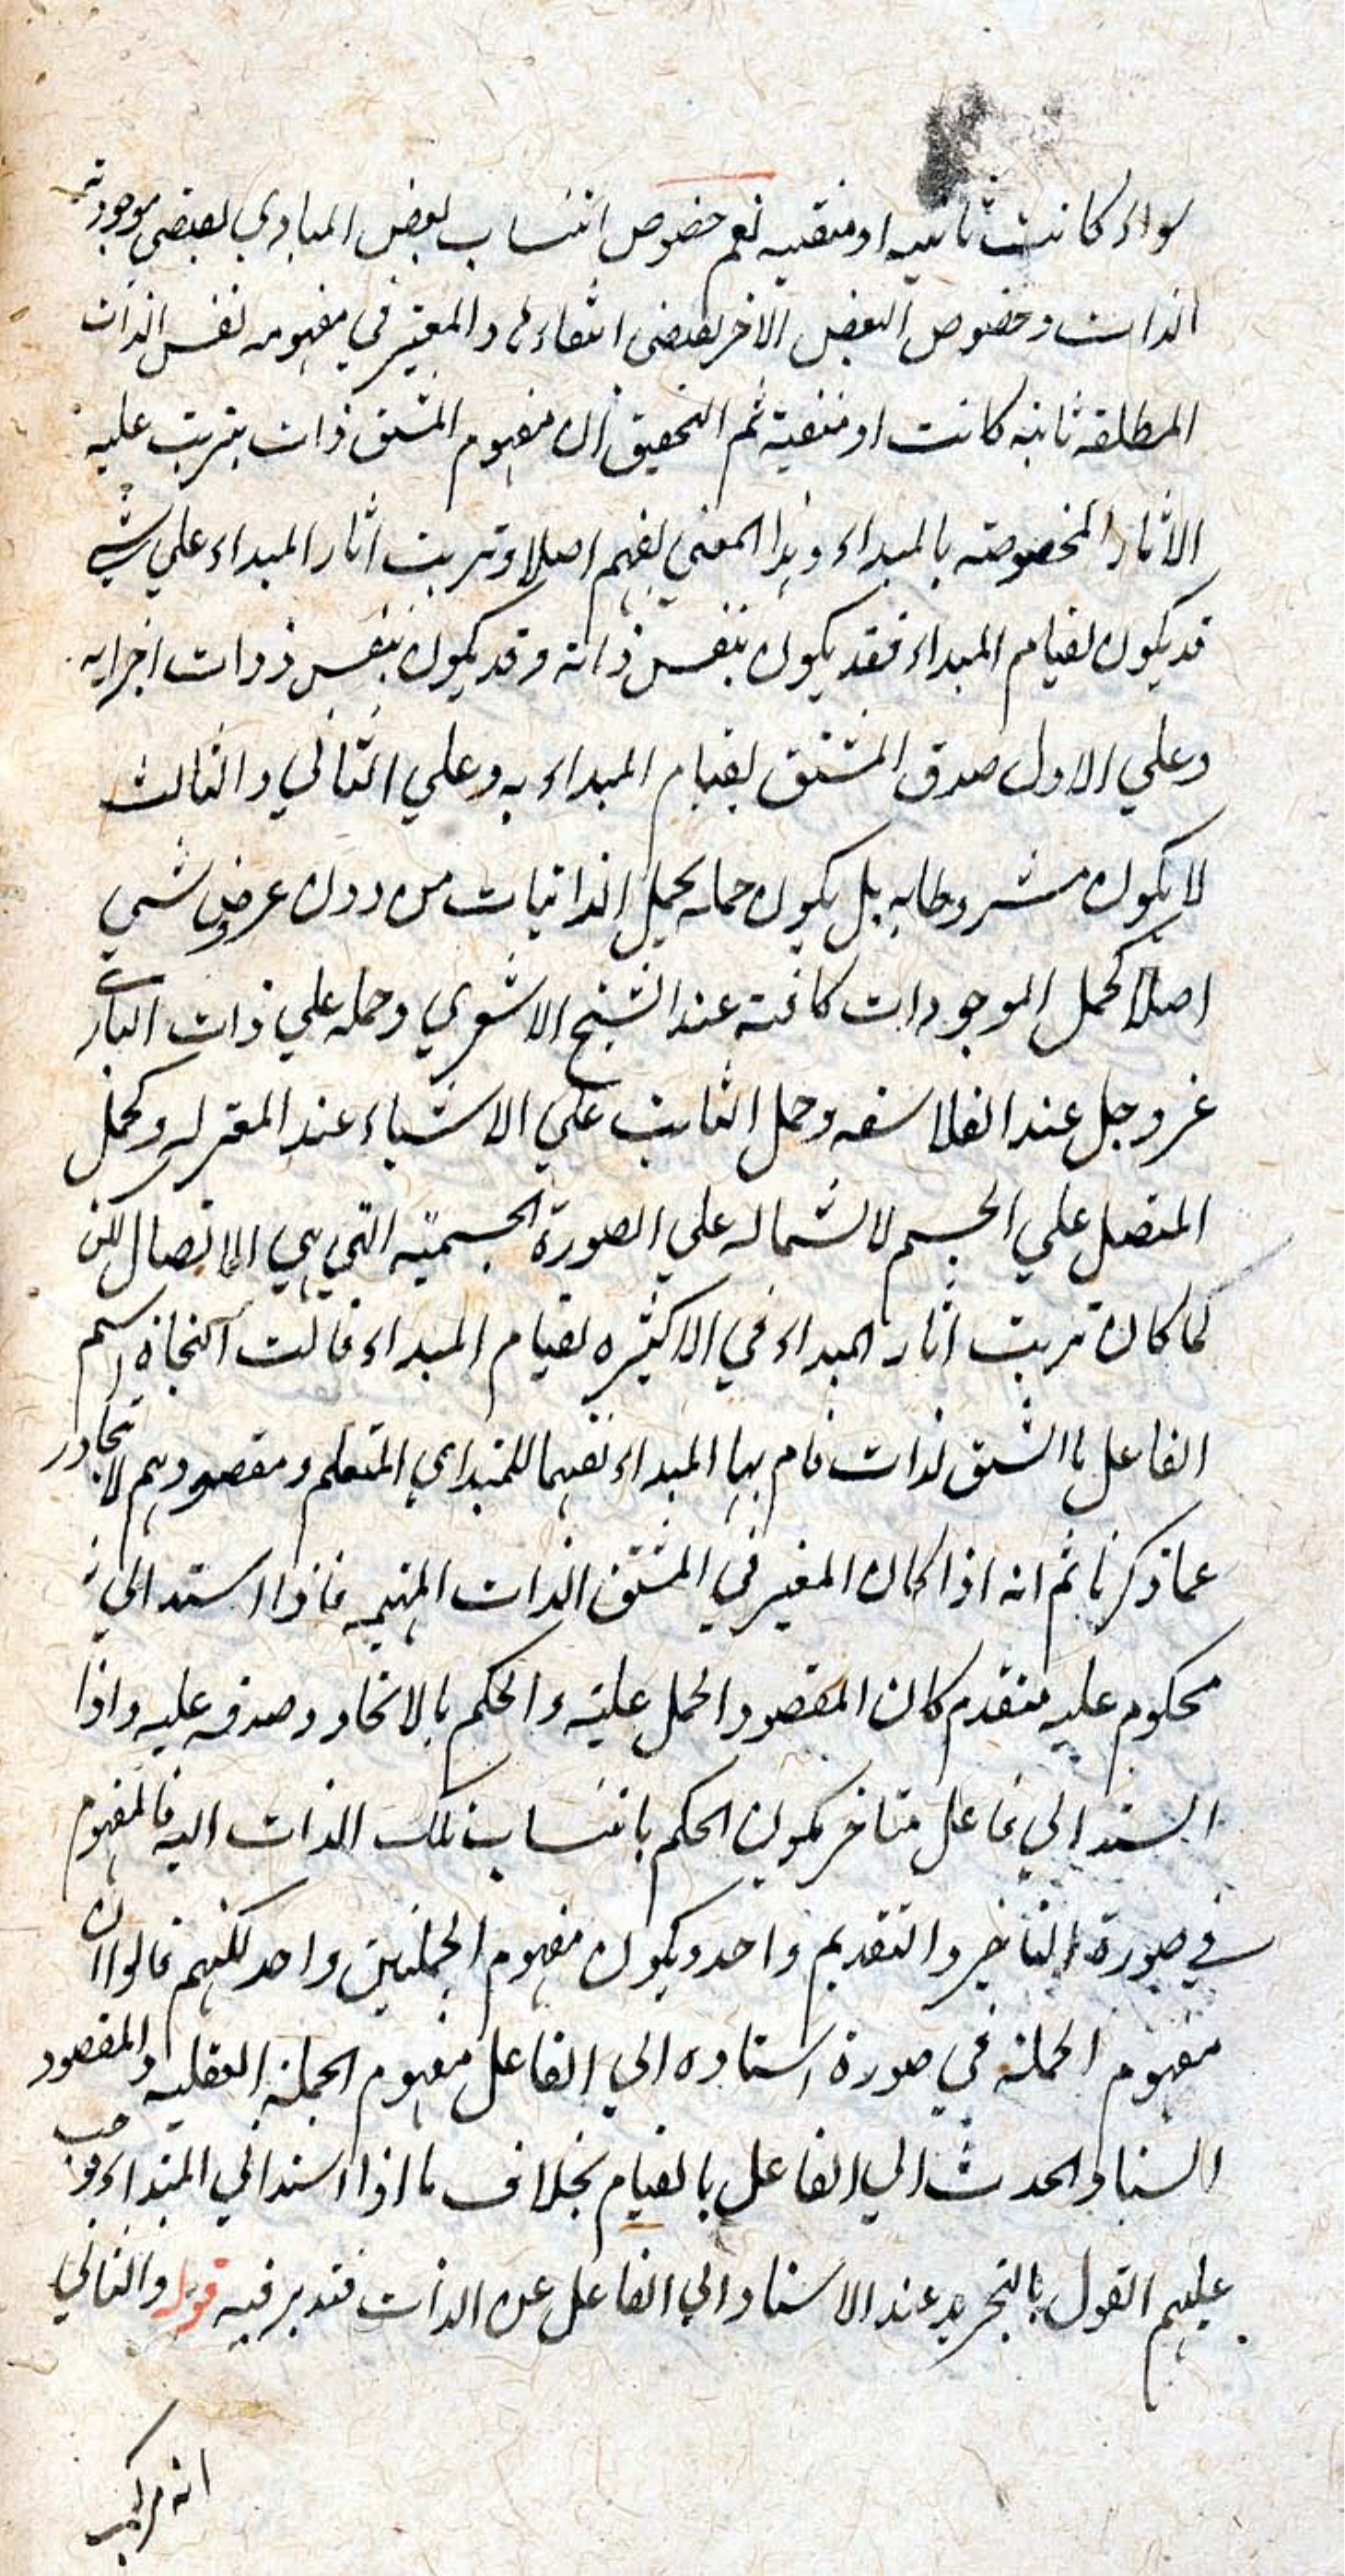 سواء كانت ثابتيه او منفيه نعم خصوص انتساب بعض المبادي يقتضي موجودية
الذات وخصوص البعض الاخر يقتضي انتفاءها والمعتبر في مفهومه نفس الذات
المطلقة ثابته كانت او منفية ثم التحقيق ان مفهوم المشتق ذات يترتب عليه
الاثار المخصوصة بالمبداء وهذا المعني يفهم اصلا وترتب اثار المبداء علي شي
قد يكون لقيام المبداء فقد يكون بنفس ذاته وقد يكون بنفس ذوات اجزايه
وعلي الاول صدق المشتق بقيام المبداء به وعلي الثاني والثالث
لا يكون مشروطا به بل يكون حمله كحمل الذاتيات من دون عروض شي
اصلا كحمل الموجودات كافة عند الشيخ الاشعري وحمله علي ذات الباري
عز وجل عند الفلاسفه وحمل الثابت علي الاشياء عند المعتزله وكحمل
المتصل علي الجسم لاشتماله علي الصورة الجسمية التي هي الاتصال لكن
لما كان ترتب اثار المبداء في الاكثر لقيام المبداء قالت النحاة اسم
الفاعل ما اشتق لذات قام بها المبداء تفهيما للمبتداي المتعلم ومقصودهم لا يتجاوز
عما ذكرنا ثم انه اذا كان المعتبر في المشتق الذات المبهمه فاذا استند الي
محكوم عليه متقدم كان المقصود الحمل عليه والحكم بالاتحاد وصدقه عليه واذا
استند الي فاعل متاخر يكون الحكم بانتساب تلك الذات اليه فالمفهوم
في صورة التاخير والتقديم واحد ويكون مفهوم الجملتين واحد لكنهم قالوا ان
مفهوم الجملة في صورة استاده الي الفاعل مفهوم الجملة الفعليه والمقصود
اسناد الحدث الي الفاعل بالقيام بخلاف ما اذا اسند الي المبتداء فوجب
عليهم القول بالتجريد عند الاسناد الي الفاعل عن الذات فتدبر فيه قوله والثاني
انه مركب